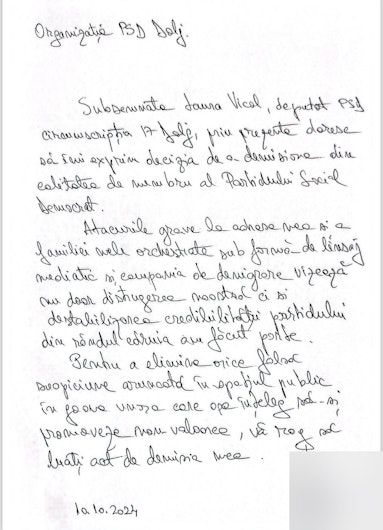 Organizația PSD Dolj.
Subsemnata Laura Vicol, deputat PSD
circumscripția 17 Dolj, prin prezenta doresc
să îmi exprim decizia de a demisiona din
calitatea de membru al Partidului Social
Democrat.
Atacurile grave la adresa mea și a
familiei mele orchestrate sub formă de linșaj
mediatic și campania de denigrare vizează
nu doar distrugerea noastră ci și
destabilizarea credibilității partidului
din rândul căruia am făcut parte.
Pentru a elimina orice falsă
suspiciune aruncată în spațiul public
în goana unora care așa înțeleg să-și
promoveze non valoarea, vă rog să
luați act de demisia mea.
10.10.2024